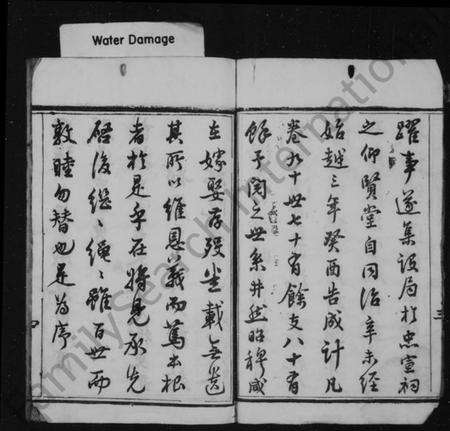 Water Damage
躍事遂集設局於忠宣祠
之仰賢堂自同治辛未經
始越三年癸酉告成計凡
卷九十世七十有餘支八十有
餘予閱之世系井然昭穆咸
三
在嫁娶存歿坐載無遺
其所以維恩義而篤本根
者於是乎在將見承先
啟後繼繼繩繩雖百世而
敦睦勿替也是為序
FamilySearch International